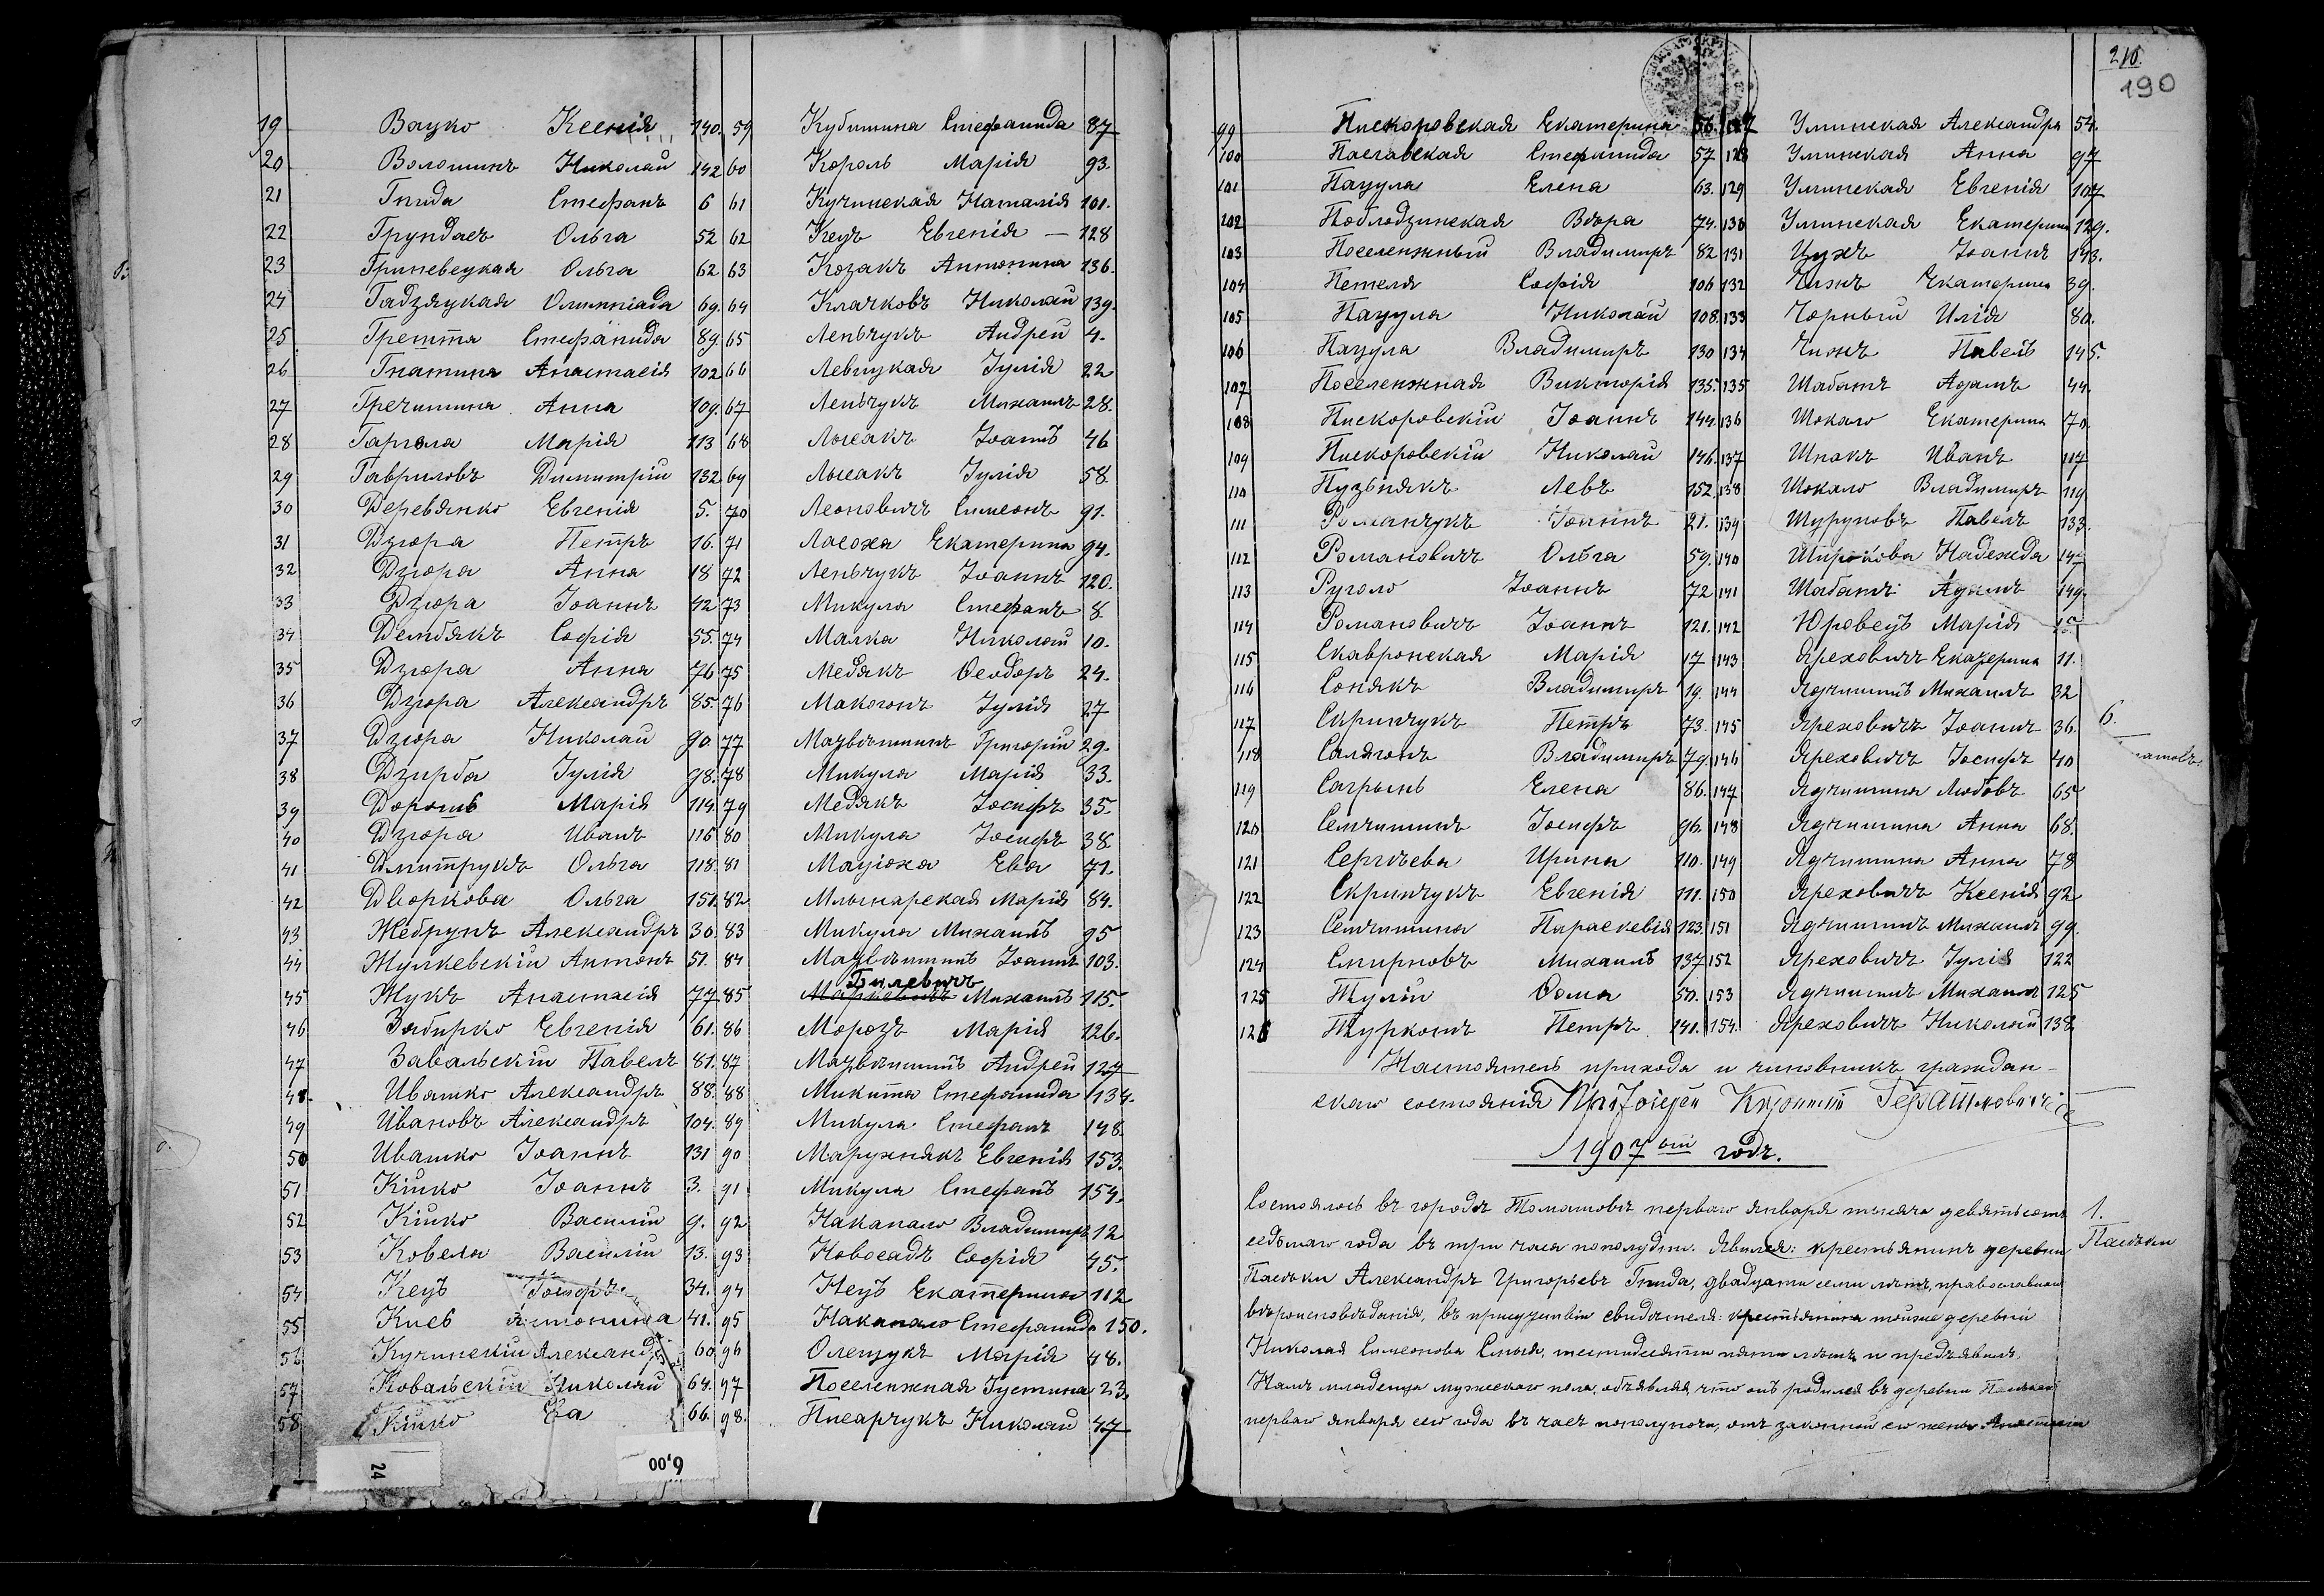 19 Вацко Ксенія 140.
20 Волошинъ Николай 142
21 Гнида Стефанъ 6
22 Грундасъ Ольга 52
23 Гриневецкая Ольга 62
24 Гадзяцкая Олимпіада 69.
25 Гретта Стефанида 89.
26 Гнатина Анастасія 102
27 Гречишина Анна 109.
28 Гаргола Марія 113
29 Гавриловъ Димитрій 132
30 Деревянко Евгенія 5.
31 Дзюра Петръ 16.
32 Дзюра Анна 18
33 Дзюра Іоаннъ 42
34 Дембякъ Софія 55.
35 Дзюра Анна 76
36 Дзюра Александръ 85.
37 Дзюра Николай 90.
38 Дзирба Іулія 98.
39 Дорошъ Марія 114
40 Дзюра Иванъ 116
41 Дмитрукъ Ольга 118.
42 Дворкова Ольга 151.
43 Жебрунъ Александръ 30.
44 Жулкевскій Антонъ 51.
45 Жукъ Анастасія 77
46 Забирко Евгенія 61.
47 Завальскій Павелъ 81.
48. Ивашко Александръ 88.
49 Ивановъ Александръ 104.
50 Ивашко Іоаннъ 131
51 Кійко Іоаннъ 3.
52 Кійко Василій 9.
53 Ковела Василій 13.
54 Кецъ Іосифъ 34.
55 Киев 41.
56 Кучинскій Александръ 60
57 Ковальскій Николай 64.
58 Кійко Ева 66.
59 Кубишина Стефанида 87
60 Король Марія 93.
61 Кучинская Наталія 101.
62 Кецъ Евгенія — 128
63 Козакъ Антонина 136.
64 Клачковъ Николай 139.
65 Леньчукъ Андрей 4.
66 Левицкая Іулія 22
67 Леньчукъ Михаилъ 28.
68 Лысакъ Іоаннъ 46
69 Лысакъ Іулія 58.
70 Леоновичъ Симеонъ 91.
71 Ласоха Екатерина 94.
72 Леньчукъ Іоаннъ 120.
73 Микула Стефанъ 8.
74 Малка Николай 10.
75 Медякъ Ѳеодоръ 24.
76 Макогонъ Іулія 27
77 Мазвѣшинъ Григорій 29.
78 Микула Марія 33.
79 Медякъ Іосифъ 35.
80 Микула Іосифъ 38.
81 Маціоха Ева 71.
82 Млынарская Марія 84.
83 Микула Михаилъ 95
84 Іоаннъ 103.
Билевичъ
85 Маркевичъ Михаилъ 115.
86 Морозъ Марія 126.
87 Андрей 127
88 Микита Стефанида 134.
89 Микула Стефанъ 148.
90 Маружнякъ Евгенія 153.
91 Микула Стефанъ 154.
92 Накапало Владимиръ 12
93 Новосадъ Софія 45.
94 Кецъ Екатерина 112
95 Накапало Стефанида 150.
96 Олещукъ Марія 48.
97 Поселенжная Іустина 23.
98. Писарчукъ Николай 47
24
6,00
210.
190
99 Пискоровская Екатерина 56.
100 Паславская Стефанида 57
101 Пацула Елена 63.
102 Поблодзинская Вѣра 74.
103 Поселенжный Владимиръ 82
104 Петеля Софія 106
105 Пацула Николай 108.
106 Пацула Владимиръ 130
107 Поселенжная Викторія 135.
108 Пискоровскій Іоаннъ 144.
109 Пискоровскій Николай 146.
110 Пузьнякъ Левъ 152.
111 Романчукъ Іоаннъ 21.
112 Романовичъ Ольга 59.
113 Руголо Іоаннъ 72
114 Романовичъ Іоаннъ 121.
115 Скавронская Марія 17
116 Сонякъ Владимиръ 19.
117 Скринчукъ Петръ 73.
118 Салягонъ Владимиръ 79.
119 Сагрынь Елена 86.
120 Семчишинъ Іосифъ 96.
121 Сергѣева Ирина 110.
122 Скринчукъ Евгенія 111.
123 Семчишина Параскевія 123.
124 Смирновъ Михаилъ 137
125 Тулій Ѳома 50.
126 Турконъ Петръ 141.
127 Улинская Александра 54.
128 Улинская Анна 97
129 Улинская Евгенія 107
130 Улинская Екатерина 129.
131 Цухъ Іоаннъ 143.
132 Чижъ Екатерина 39.
133 Чорный Илія 80.
134 Чижъ Павелъ 145.
135 Шабатъ Адамъ 44.
136 Шокало Екатерина 70.
137 Шпакъ Иванъ 117
138 Шокало Владимиръ 119
139 Шуруновъ Павелъ 133.
140 Широкова Надежда 147
141 Шабатъ Адамъ 149.
142 Юровецъ Марія
143 Яреховичъ Екатерина 11.
144 Ядчишинъ Михаилъ 32
145 Яреховичъ Іоаннъ 36.
146 Яреховичъ Іосифъ 40
147 Ядчишина Любовь 65
148 Ядчишина Анна 68.
149 Ядчишина Анна 78
150 Яреховичъ Ксенія 92
151 Ядчишинъ Михаилъ 99.
152 Яреховичъ Іулія 122
153 Ядчишинъ Михаилъ 125
154. Яреховичъ Николай 138
Настоятель прихода и чиновникъ граждан-
скаго состоянія
1907 ый годъ.
1.
Пасѣки
Состоялось въ городѣ Томашовѣ перваго января тысяча девятьсотъ
седьмаго года въ три часа пополудни. Явился: крестьянинъ деревни
Пасѣки Александръ Григорьевъ Гнида, двадцати семи лѣтъ, православнаго
вѣроисповѣданія, въ присутствіи свидѣтеля: крестьянина тойже деревни
Николая Симеонова шестидесяти пяти лѣтъ и предъявилъ
Намъ младенца мужескаго пола, объявляя, что онъ родился въ деревни Пасѣкахъ
перваго января сего года въ часъ пополуночи, отъ законной его жены Анастасіи